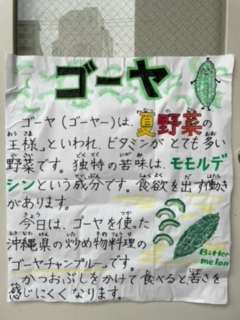 ゴーヤ
ゴーヤ(ゴーヤー)は、夏野菜の
王様。といわれ、ビタミンがとても多い
野菜です。独特の苦味は、モモルデ
シンという成分です。食欲を出す働き
があります。
今日は、ゴーヤを使った
沖縄県の炒め物料理の
「ゴーヤチャンプルー」です。
かつおぶしをかけて食べると苦さを
感じにくくなります。
Bitter
melon